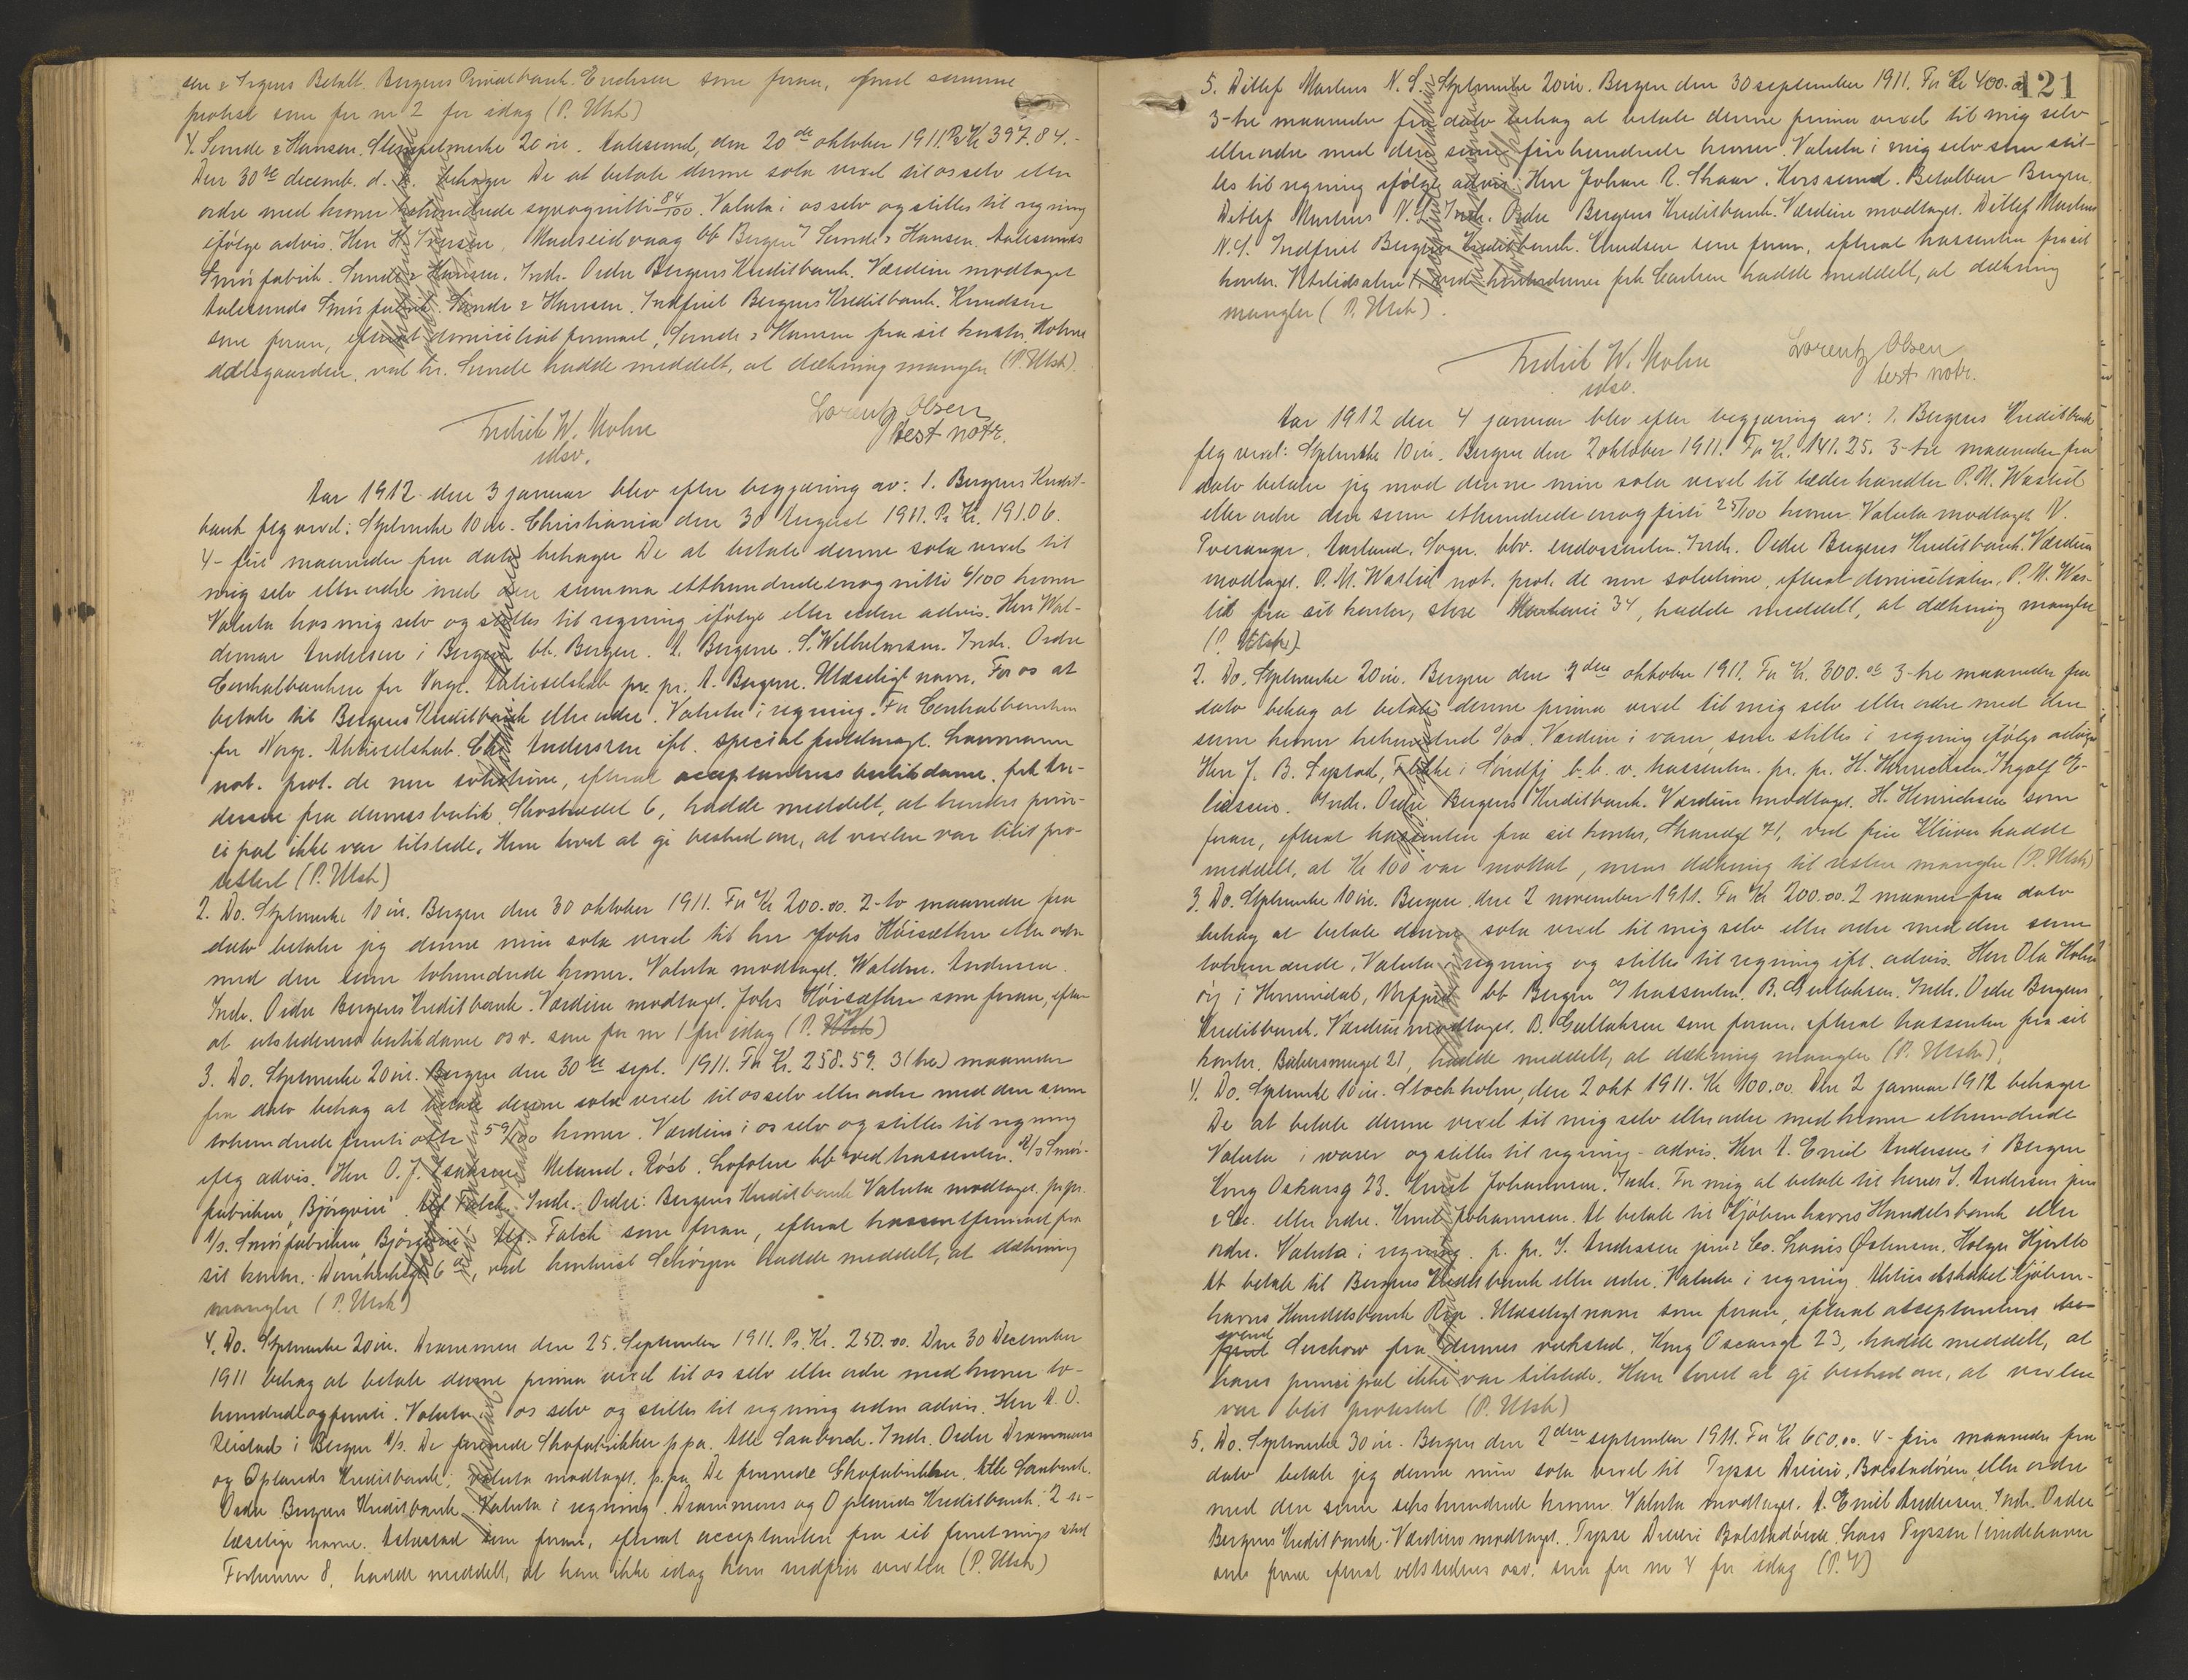 sen & Irgens Betalt. Bergens Privatbank. Erichsen som foran, efterat samme
protest som for nr 2 for idag (P. Utsk)
4. Sunde & Hansen. Stempelmerke 20 öre. Aalesund, den 20de oktober 1911. Pr Kr 397.84.-
Den 30te decemb. d. a. behager De at betale denne sola vexel til os selv eller
ordre med kroner trehundrede syvognitti 84/100. Valuta i os selv og stilles til regning
ifölge advis. Herr H. Iversen, Manseidvaag bb Bergen Sunde & Hansen. Aalesunds
Smörfabrik. Sunde & Hansen. Indr. Ordre Bergens Kreditbank. Værdien modtaget
Aalesunds Smörfabrik. Sunde & Hansen. Indfriet Bergens Kreditbank. Knudsen
som foran, efterat domiciliat firmaet, Sunde & Hansen fra sit kontor, Holme
dalsgaarden, ved hr. Sunde hadde meddelt, at dækning mangler (P. Utsk).
Fredrik W. Mohn
edsv.
Lorentz Olsen
test notr.
Aar 1912 den 3 januar blev efter begjæring av: 1. Bergens Kredit-
bank flg vexel: Stplmerke 10 öre. Christiania den 30 August 1911. Pr Kr. 191.06.
4- fire maaneder fra dato behager De at betale denne sola vexel til
mig selv eller ordre med den summa etthundredeenognitti 6/100 kroner
Valuta hos mig selv og stilles til regning ifölge eller uden advis. Herr Wal-
demar Andersen i Bergen bb. Bergen. A. Bergene. S. Wilhelmsen. Indr. Ordre
Centralbanken for Norge. Aktieselskab pr. pr. A. Bergene. Ulæseligt navn. For os at
betale til Bergens Kreditbank eller ordre. Valuta i regning. For Centralbanken
for Norge. Aktieselskab. Chr. Anderssen ifl. special fuldmagt.
not. prot. de non solutione, efterat acceptantens butikdame, frk An-
dersen fra dennes butik, Skostrædet 6, hadde meddelt, at hendes prin-
cipal ikke var tilstede. Hun lovet at gi besked om, at vexlen var blit pro-
testert (P. Utsk)
2. Do. Stplmerke 10 öre. Bergen den 30 oktober 1911. For Kr 200.00. 2-to maaneder fra
dato betaler jeg denne min sola vexel til herr Johs Höisæther eller ordre
med den sum tohundrede kroner. Valuta modtaget. Waldm. Andersen.
Indr. Ordre Bergens Kreditbank. Værdien modtaget. Johs Höisæther som foran, efter-
at utstederens butikdame osv. som for nr 1 for idag (P. Utsk)
3. Do. Stplmerke 20 öre. Bergen den 30te sept. 1911. For Kr. 258.59. 3 (tre) maaneder
fra dato behag at betale denne sola vexel til os selv eller ordre med den sum
tohundrede femti otte 59/100 kroner. Værdien i os selv og stilles til regning
iflg advis. Herr O. J. Isaksen, Røst. Lofoten bb ved trassenten. A/S Smör-
fabriken "Björgvin". Alf Falch. Indr. Ordre: Bergens Kreditbank Valuta modtaget. pr. pr.
A/S. Smörfabriken "Björgvin" Alf. Falch som foran, efterat trassentfirmaet fra
sit kontor. ved kontorist hadde meddelt, at dækning
mangler (P. Utsk)
4. Do. Stplmerke 20 öre. Drammen den 25. September 1911. Pr. Kr. 250.00. Den 30 December
1911 behag at betale denne prima vexel til os selv eller ordre med kroner to-
hundredeogfemti. Valuta i os selv og stilles til regning uden advis. Herr A. O.
Reistad i Bergen A/S. De forenede Skofabrikker p.pa. Atle Sanborch. Indr. Ordre Drammens
og Oplands Kreditbank; valuta modtaget. p.pa. De forenede Skofabrikker. Atle Sanborch.
Ordre Bergens Kreditbank. Valuta i regning. Drammens og Oplands Kreditbank: 2 u-
læselige navne. som foran, efterat acceptanten fra sit forretnings sted
Fortunen 8, hadde meddelt, at han ikke idag kan indfri vexlen (P. Utsk)
121
5. Ditlef Martens N. S. Stplmerke 20 öre. Bergen den 30 september 1911. For Kr 400.00
3-tre maaneder fra dato behag at betale denne prima vexel til mig selv
eller ordre med den sum firehundrede kroner. Valuta i mig selv som stil-
les til regning ifölge advis. Herr Johan R. Skaar. Betalbar Bergen.
Ditlef Martens N. S. Indr. Ordre Bergens Kreditbank. Værdien modtaget. Ditlef Martens
N. S. Indfriet Bergens Kreditbank. Knudsen som foran, efterat trassenten fra sit
kontor. ved kontordame frk Carlsen hadde meddelt, at dækning
mangler (P. Utsk).
Fredrik W. Mohn
edsv.
Lorentz Olsen
test notr.
Aar 1912 den 4 januar blev efter begjæring av: 1. Bergens Kreditbank
flg vexel: Stplmerke 10 öre. Bergen den 2 oktober 1911. For Kr. 141.25. 3-tre maaneder fra
dato betaler jeg mod denne min sola vexel til læderhandler P. M. Wastlid
eller ordre den sum ethundrede enogfirti 25/100 kroner. Valuta modtaget. N.
Tveranger, Aurland. Sogn. bbr. endossenten. Indr. Ordre Bergens Kreditbank. Værdien
modtaget. P. M. Wastlid not. prot. de non solutione, efterat domiciliaten, P. M. Was-
lid fra sit kontor, store Markevei 34, hadde meddelt, at dækning mangler
(P. Utsk).
2. Do. Stplmerke 20 öre. Bergen den 2den oktober 1911. For Kr. 300.00 3-tre maaneder fra
dato behag at betale denne prima vexel til mig selv eller ordre med den
sum kroner trehundred 0/00. Værdien i varer, som stilles i regning ifölge advis
Herr J. B. Systad, Flekke i Söndfj b.b. v. trassenten. pr. pr. H. Henrichsen. Ingolf E-
liassen. Indr. Ordre Bergens Kreditbank. Værdien modtaget. H. Henrichsen som
foran, efterat trassenten fra sit kontor, Strandgt 71, ved frk Klüver hadde
meddelt, at Kr 100 var mottat, mens dækning til resten mangler (P. Utsk)
3. Do. Stplmerke 10 öre. Bergen den 2 november 1911. For Kr 200.00. 2 maaneder fra dato
behag at betale denne sola vexel til mig selv eller ordre med den sum
tohundrede. Valuta i regning og stilles til regning ifl. advis. Herr Ola Holm-
öy i bb Bergen trassenten. B. Gullaksen. Indr. Ordre Bergens
Kreditbank. Værdien modtaget. B. Gullaksen som foran, efterat trassenten fra sit
kontor, 21, hadde meddelt, at dækning mangler (P. Utsk).
4. Do. Stplmerke 10 öre. Stockholm, den 2 okt 1911. Kr 100.00. Den 2 januar 1912 behager
De at betale denne vexel til mig selv eller ordre med kroner etthundrede
Valuta i varer og stilles til regning - advis. Herr A. Emil Andersen i Bergen
Kong Oskarsg 23. Knut Johannsen. Indr. For mig at betale til herrer J. Andersen jun
& Co. eller ordre. Knut Johannsen. At betale til Kjöbenhavns Handelsbank eller
ordre. Valuta i regning. p. pr. J. Andersen jun & Co. Louis Østersen. Holger Hjortlo
At betale til Bergens Kreditbank eller ordre. Valuta i regning. Aktieselskabet Kjöben-
havns Handelsbank Rep. Ulæseligt navn som foran, efterat acceptantens
svend Suchow fra dennes verksted, Kong Oscarsgt 23, hadde meddelt, at
hans principal ikke var tilstede. Han lovet at gi besked om, at vexlen
var blit protestert (P. Utsk)
5. Do. Stplmerke 30 öre. Bergen den 2den september 1911. For Kr 600.00. 4- fire maaneder fra
dato betaler jeg denne min sola vexel til Tysse Dreieri, Bolstadören, eller ordre
med den sum sekshundrede kroner. Valuta modtaget. A. Emil Andersen. Indr. Ordre
Bergens Kreditbank. Værdien modtaget. Tysse Dreieri Bolstadören. Lars Tyssen (indehaver
som foran efterat utstederens osv. som for nr 4 for idag (P. U)